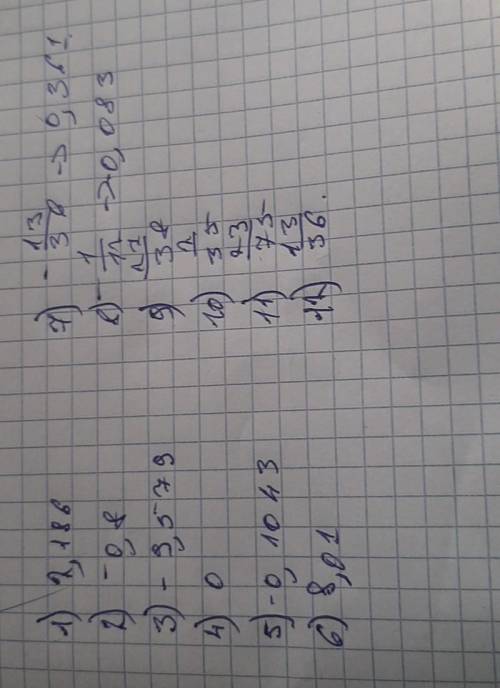 1) 2,186
2) -0,8
3) -9,579
4) 0
5) -0,1043
6) 8,01
7) - 13/38 ->
8) - 1/12 -> 0,083
9)
10) 2/35
11) 23/75
12) 13/36.